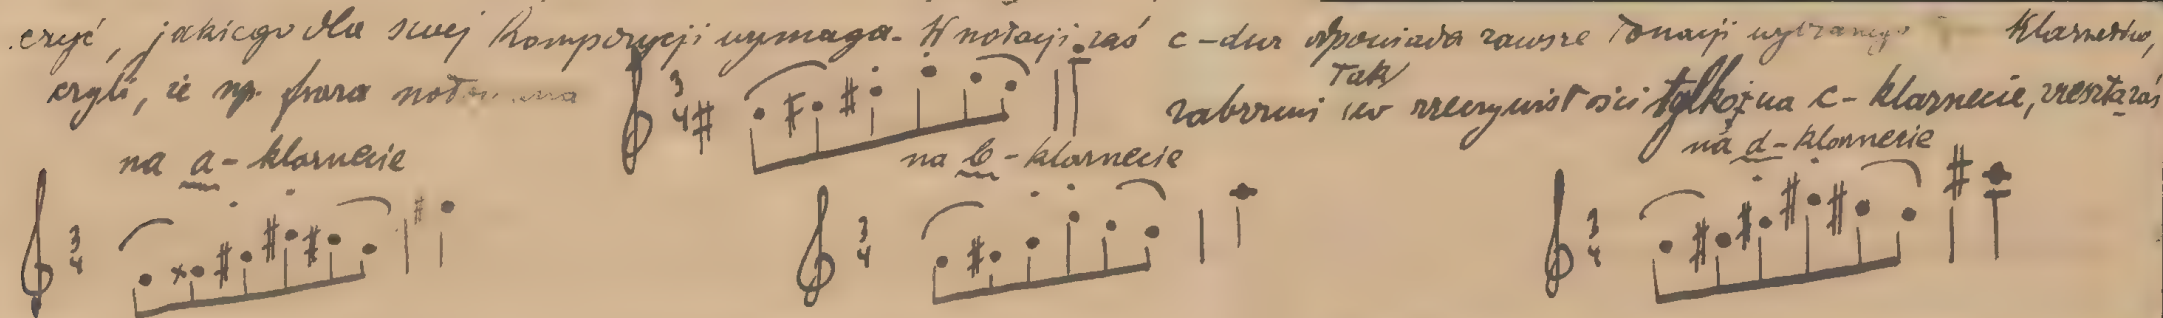 czyć, jakiego dla swej kompozycji wymaga. W notacji zaś c-dur odpowiada zawsze tonacji wybranego klarnetów,
czyli, że np. fraza notowana tak zabrzmi w rzeczywistości tylko na c-klarnecie, zresztą zaś
na a-klarnecie na b-klarnecie na d-klarnecie
3 4 3 4 3 4